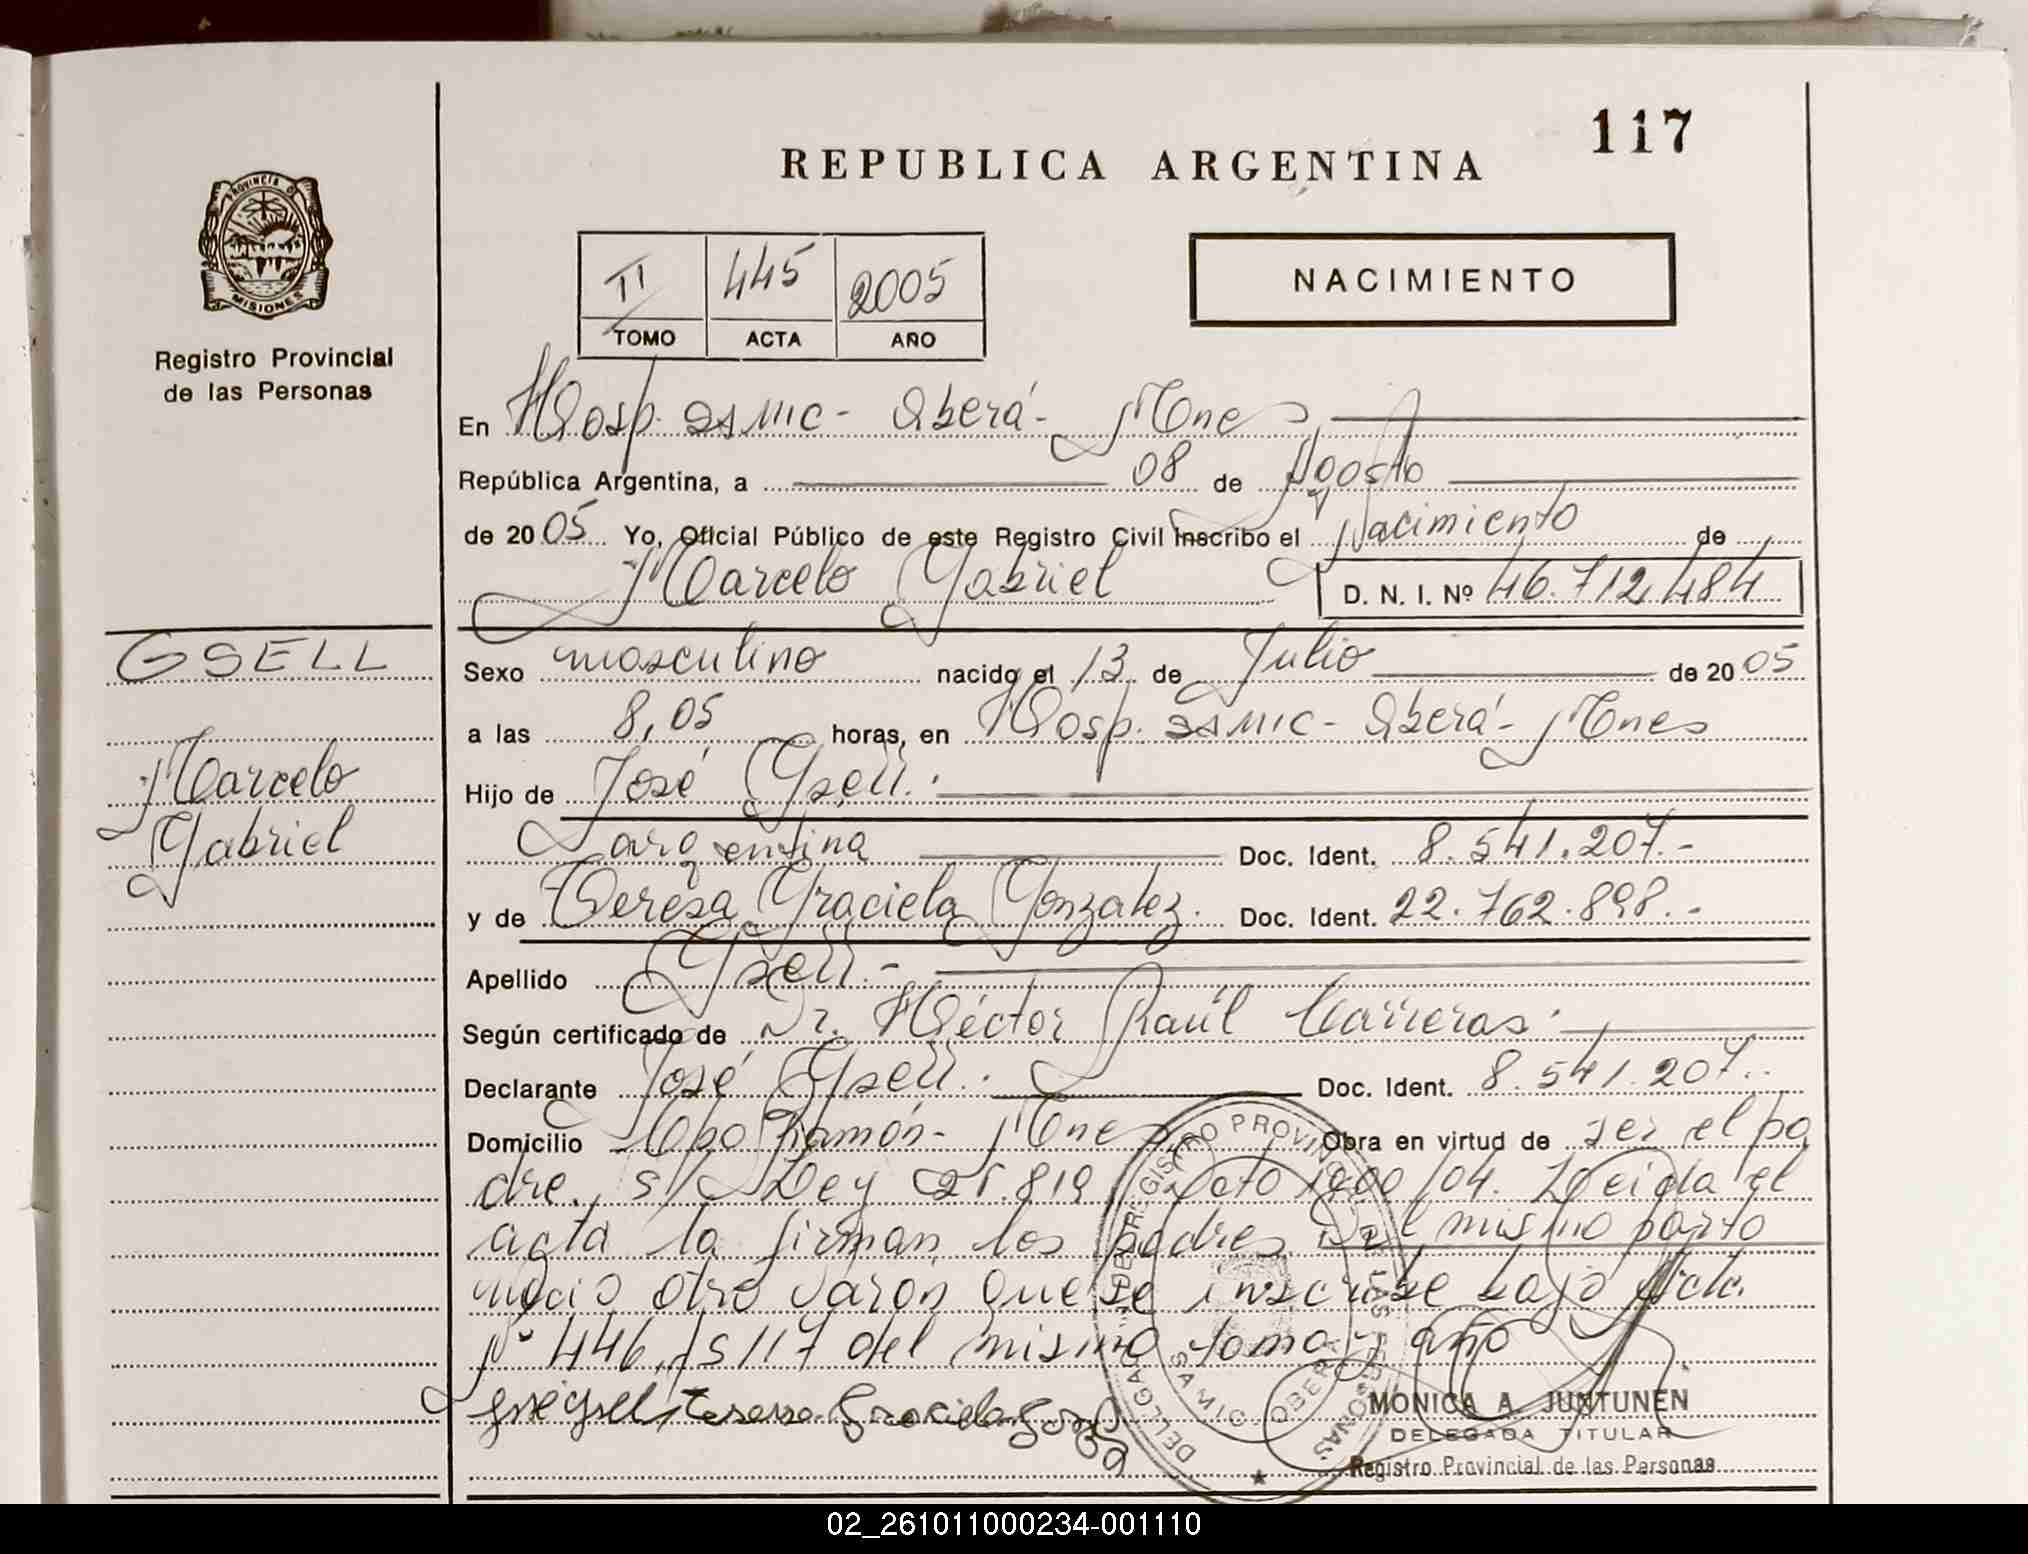 117
REPUBLICA ARGENTINA
PROVINCIA D
MISIONES
Registro Provincial
de las Personas
II 445 2005
TOMO ACTA AÑO
NACIMIENTO
En Hosp. SAMIC - Oberá - Mnes
República Argentina, a 08 de Agosto
de 2005 Yo, Oficial Público de este Registro Civil inscribo el Nacimiento de
Marcelo Gabriel D. N. I. Nº 46.712.484
GSELL
Marcelo
Gabriel
Sexo masculino nacido el 13 de Julio de 2005
a las 8,05 horas, en Hosp. SAMIC - Oberá - Mnes
Hijo de José Gsell.
argentina Doc. Ident. 8.541.207.-
y de Teresa Graciela Gonzalez. Doc. Ident. 22.762.898.-
Apellido Gsell.-
Según certificado de Dr. Héctor Raúl Carreras.
Declarante José Gsell. Doc. Ident. 8.541.207.
Domicilio Cpo Ramón - Mnes Obra en virtud de ser el pa
dre., s/ Ley 25.819 Dcto 1900/04. Leida el
acta la firman los padres. Del mismo parto
nació otro varón que se inscribe bajo Acta
Nº 446, Fs 117 del mismo tomo y año
José Gsell Teresa Graciela Gonza
REGISTRO PROVINCIAL DE LAS PERSONAS
SAMIC OBERA
MONICA A. JUNTUNEN
DELEGADA TITULAR
Registro Provincial de las Personas
02_261011000234-001110